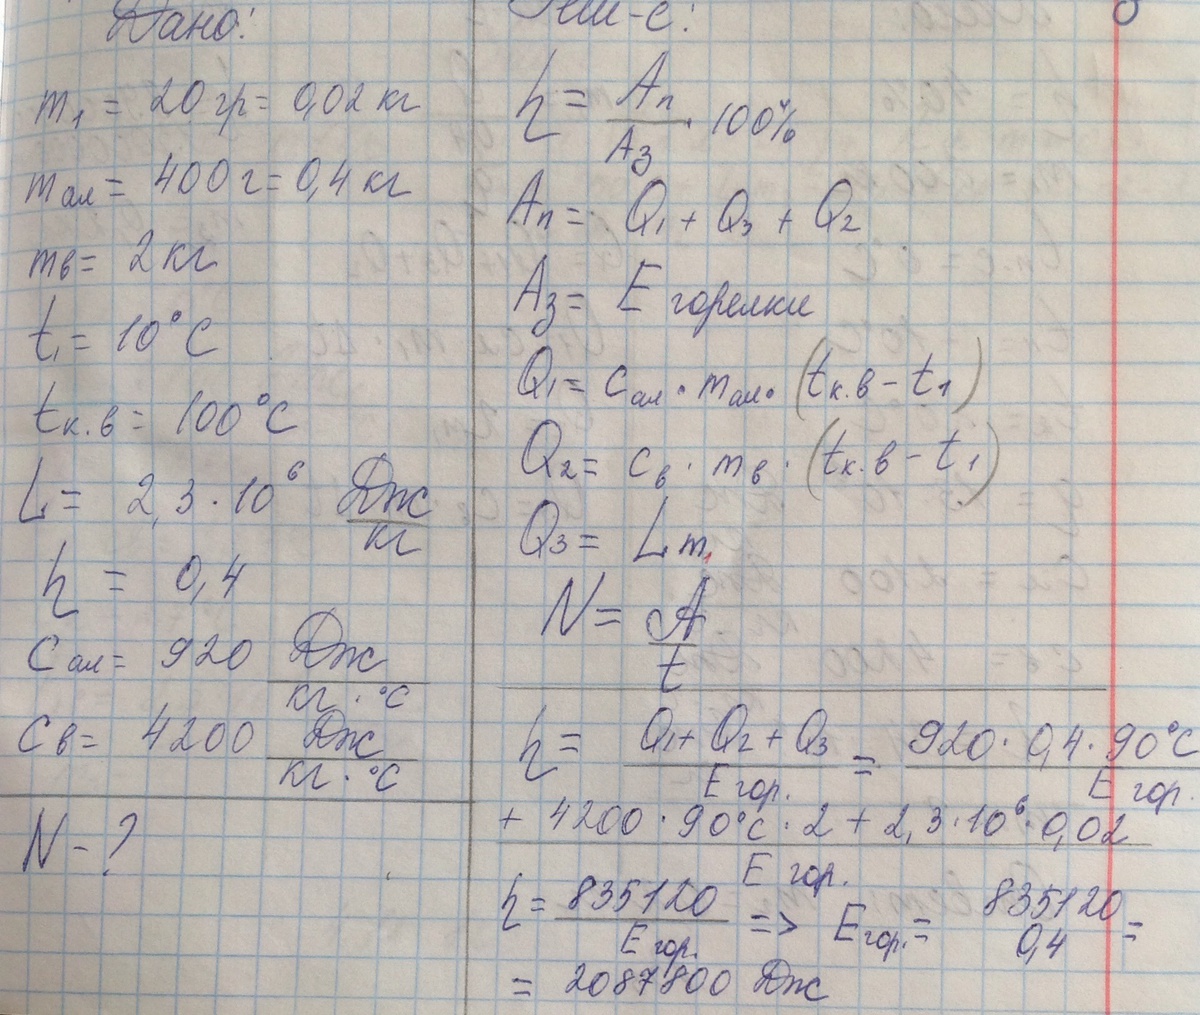 Дано:
m₁ = 20 гр = 0,02 кг
mал = 400 г = 0,4 кг
mв = 2 кг
t₁ = 10°C
tк.в = 100°C
L = 2,3 · 10⁶ Дж/кг
η = 0,4
Cал = 920 Дж/кг · °C
Cв = 4200 Дж/кг · °C
N - ?
Реш-е:
η = Aп/Aз · 100%
Aп = Q₁ + Q₃ + Q₂
Aз = E горелки
Q₁ = cал · mал · (tк.в – t₁)
Q₂ = cв · mв · (tк.в – t₁)
Q₃ = Lm₁
N = A/t
η = Q₁ + Q₂ + Q₃/E гор. = 920 · 0,4 · 90°C/E гор.
+ 4200 · 90°C · 2 + 2,3 · 10⁶ · 0,02/E гор.
η = 835120/E гор. => Eгор. = 835120/0,4 =
= 2087800 Дж